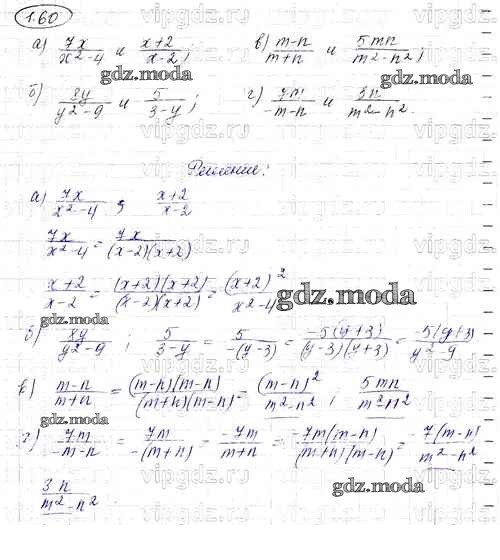 1.60
а) 7x/(x²-4) и (x+2)/(x-2); в) (m-n)/(m+n) и 5mn/(m²-n²);
gdz.moza gdz.moza
б) 8y/(y²-9) и 5/(3-y); г) 7m/(-m-n) и 3n/(m²-n²).
Решение:
а) 7x/(x²-4) , (x+2)/(x-2)
7x/(x²-4) = 7x/((x-2)(x+2))
(x+2)/(x-2) = (x+2)(x+2)/((x-2)(x+2)) = (x+2)²/(x²-4)
gdz.moza
gdz.moza
б) 8y/(y²-9) ; 5/(3-y) = 5/(-(y-3)) = -5(y+3)/((y-3)(y+3)) = -5(y+3)/(y²-9)
в) (m-n)/(m+n) = (m-n)(m-n)/((m+n)(m-n)) = (m-n)²/(m²-n²) ; 5mn/(m²-n²)
gdz.moza
г) 7m/(-m-n) = 7m/(-(m+n)) = -7m/(m+n) = -7m(m-n)/((m+n)(m-n)) = -7(m-n)/(m²-n²)
3n/(m²-n²)
gdz.moza
gdz.moza